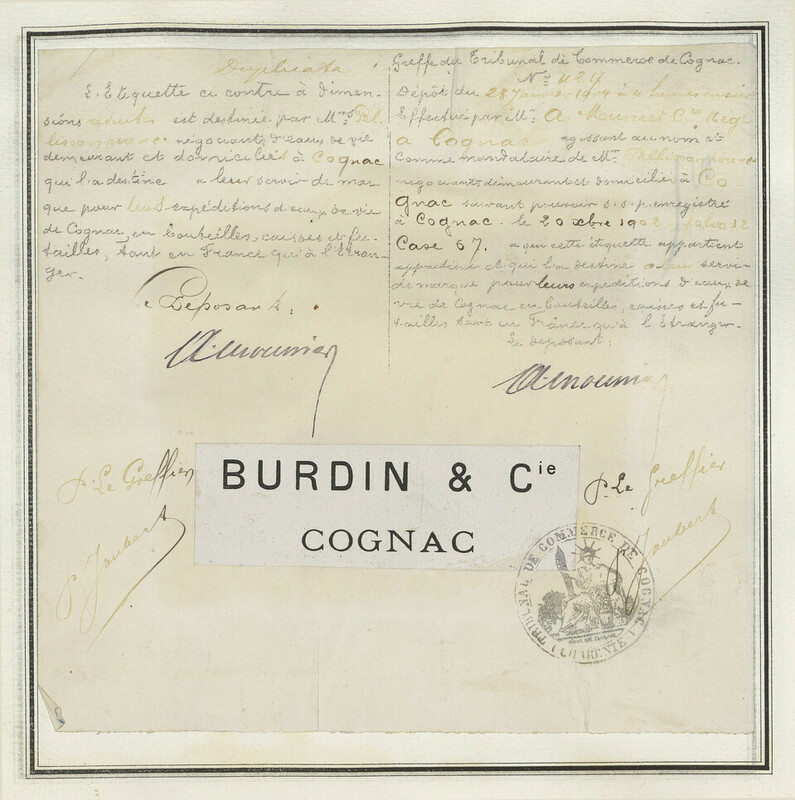 Duplicata
L'Etiquette ci contre à dimen-
sions réduites est destinée par Mrs Pel
lisson père &c négociants d'eaux de vie
demeurant et domiciliés à Cognac
qui l'a destine a leur servir de mar
que pour leurs expéditions d'eaux de vie
de Cognac, en bouteilles, caisses et fu-
tailles, tant en France qu'à l'Etran-
ger.
Le Déposant.
A. Mounier
Greffe du Tribunal de Commerce de Cognac.
No 424
Dépôt du 28 Janvier 1904 à 4 heures du soir
Effectué par Mr. A Mounier Cie
à Cognac agissant au nom et
Comme mandataire de Mr. Pellisson père
négociants demeurant et domiciliés à Co
gnac suivant pouvoir s.s.p. enregistré
à Cognac. le 20 xbre 1902 folio 12
Case 67. a qui cette étiquette appartient
et qui l'a destine a leur servir
de marque pour leurs expéditions d'eaux de
vie de Cognac en bouteilles, caisses et fu-
tailles tant en France qu'à l'Etranger.
Le déposant:
A. Mounier
P. Le Greffier
P. Joubert
BURDIN & Cie
COGNAC
P. Le Greffier
P. Joubert
TRIBUNAL DE COMMERCE DE COGNAC
(CHARENTE)